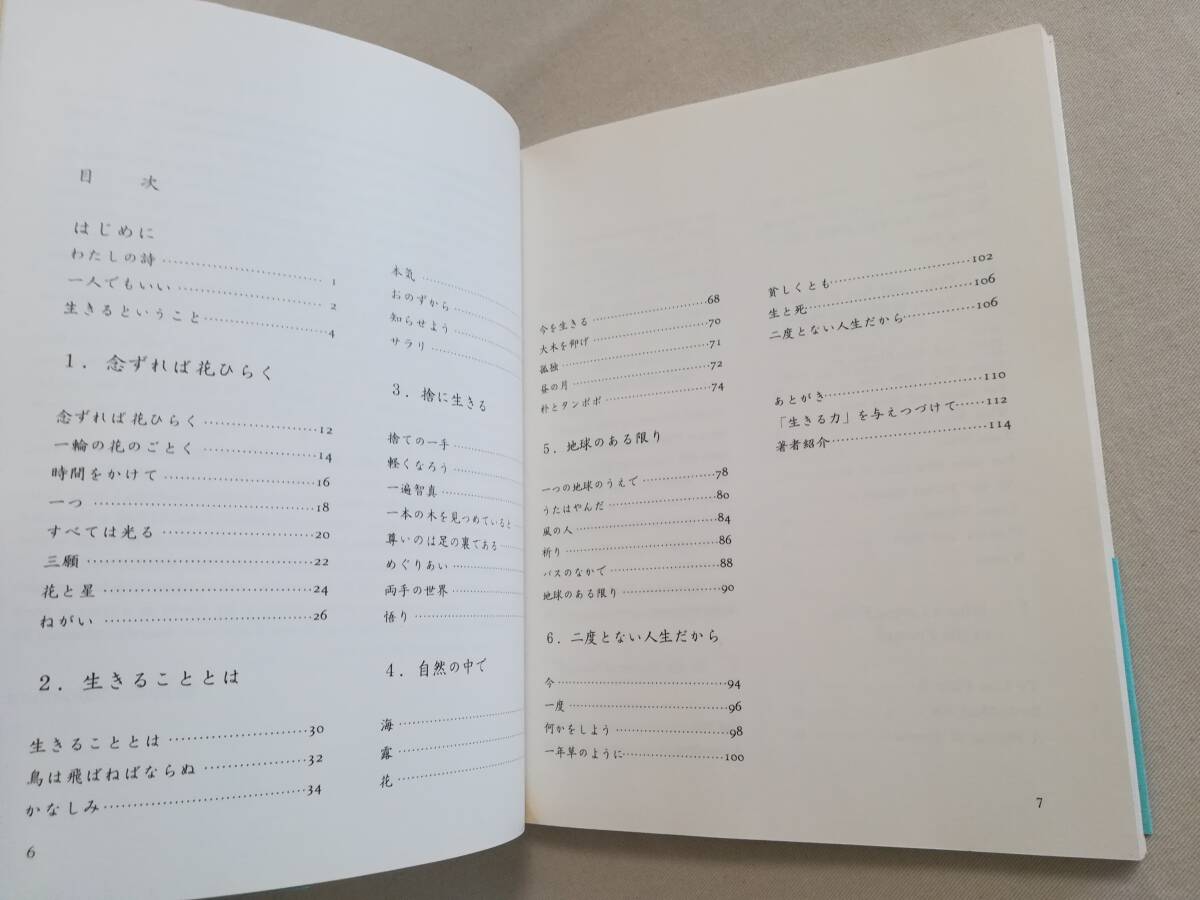 目　次
はじめに
わたしの詩 1
一人でもいい 2
生きるということ 4
1. 念ずれば花ひらく
念ずれば花ひらく 12
一輪の花のごとく 14
時間をかけて 16
一つ 18
すべては光る 20
三願 22
花と星 24
ねがい 26
2. 生きることとは
生きることとは 30
鳥は飛ばねばならぬ 32
かなしみ 34
6
本気
おのずから
知らせよう
サラリ
3. 捨に生きる
捨ての一手
軽くなろう
一遍智真
一本の木を見つめていると
尊いのは足の裏である
めぐりあい
両手の世界
悟り
4. 自然の中で
海
露
花
今を生きる 68
大木を仰げ 70
孤独 71
昼の月 72
朴とタンポポ 74
5. 地球のある限り
一つの地球のうえで 78
うたはやんだ 80
風の人 84
祈り 86
バスのなかで 88
地球のある限り 90
6. 二度とない人生だから
今 94
一度 96
何かをしよう 98
一年草のように 100
貧しくとも 102
生と死 106
二度とない人生だから 106
あとがき 110
「生きる力」を与えつづけて 112
著者紹介 114
7